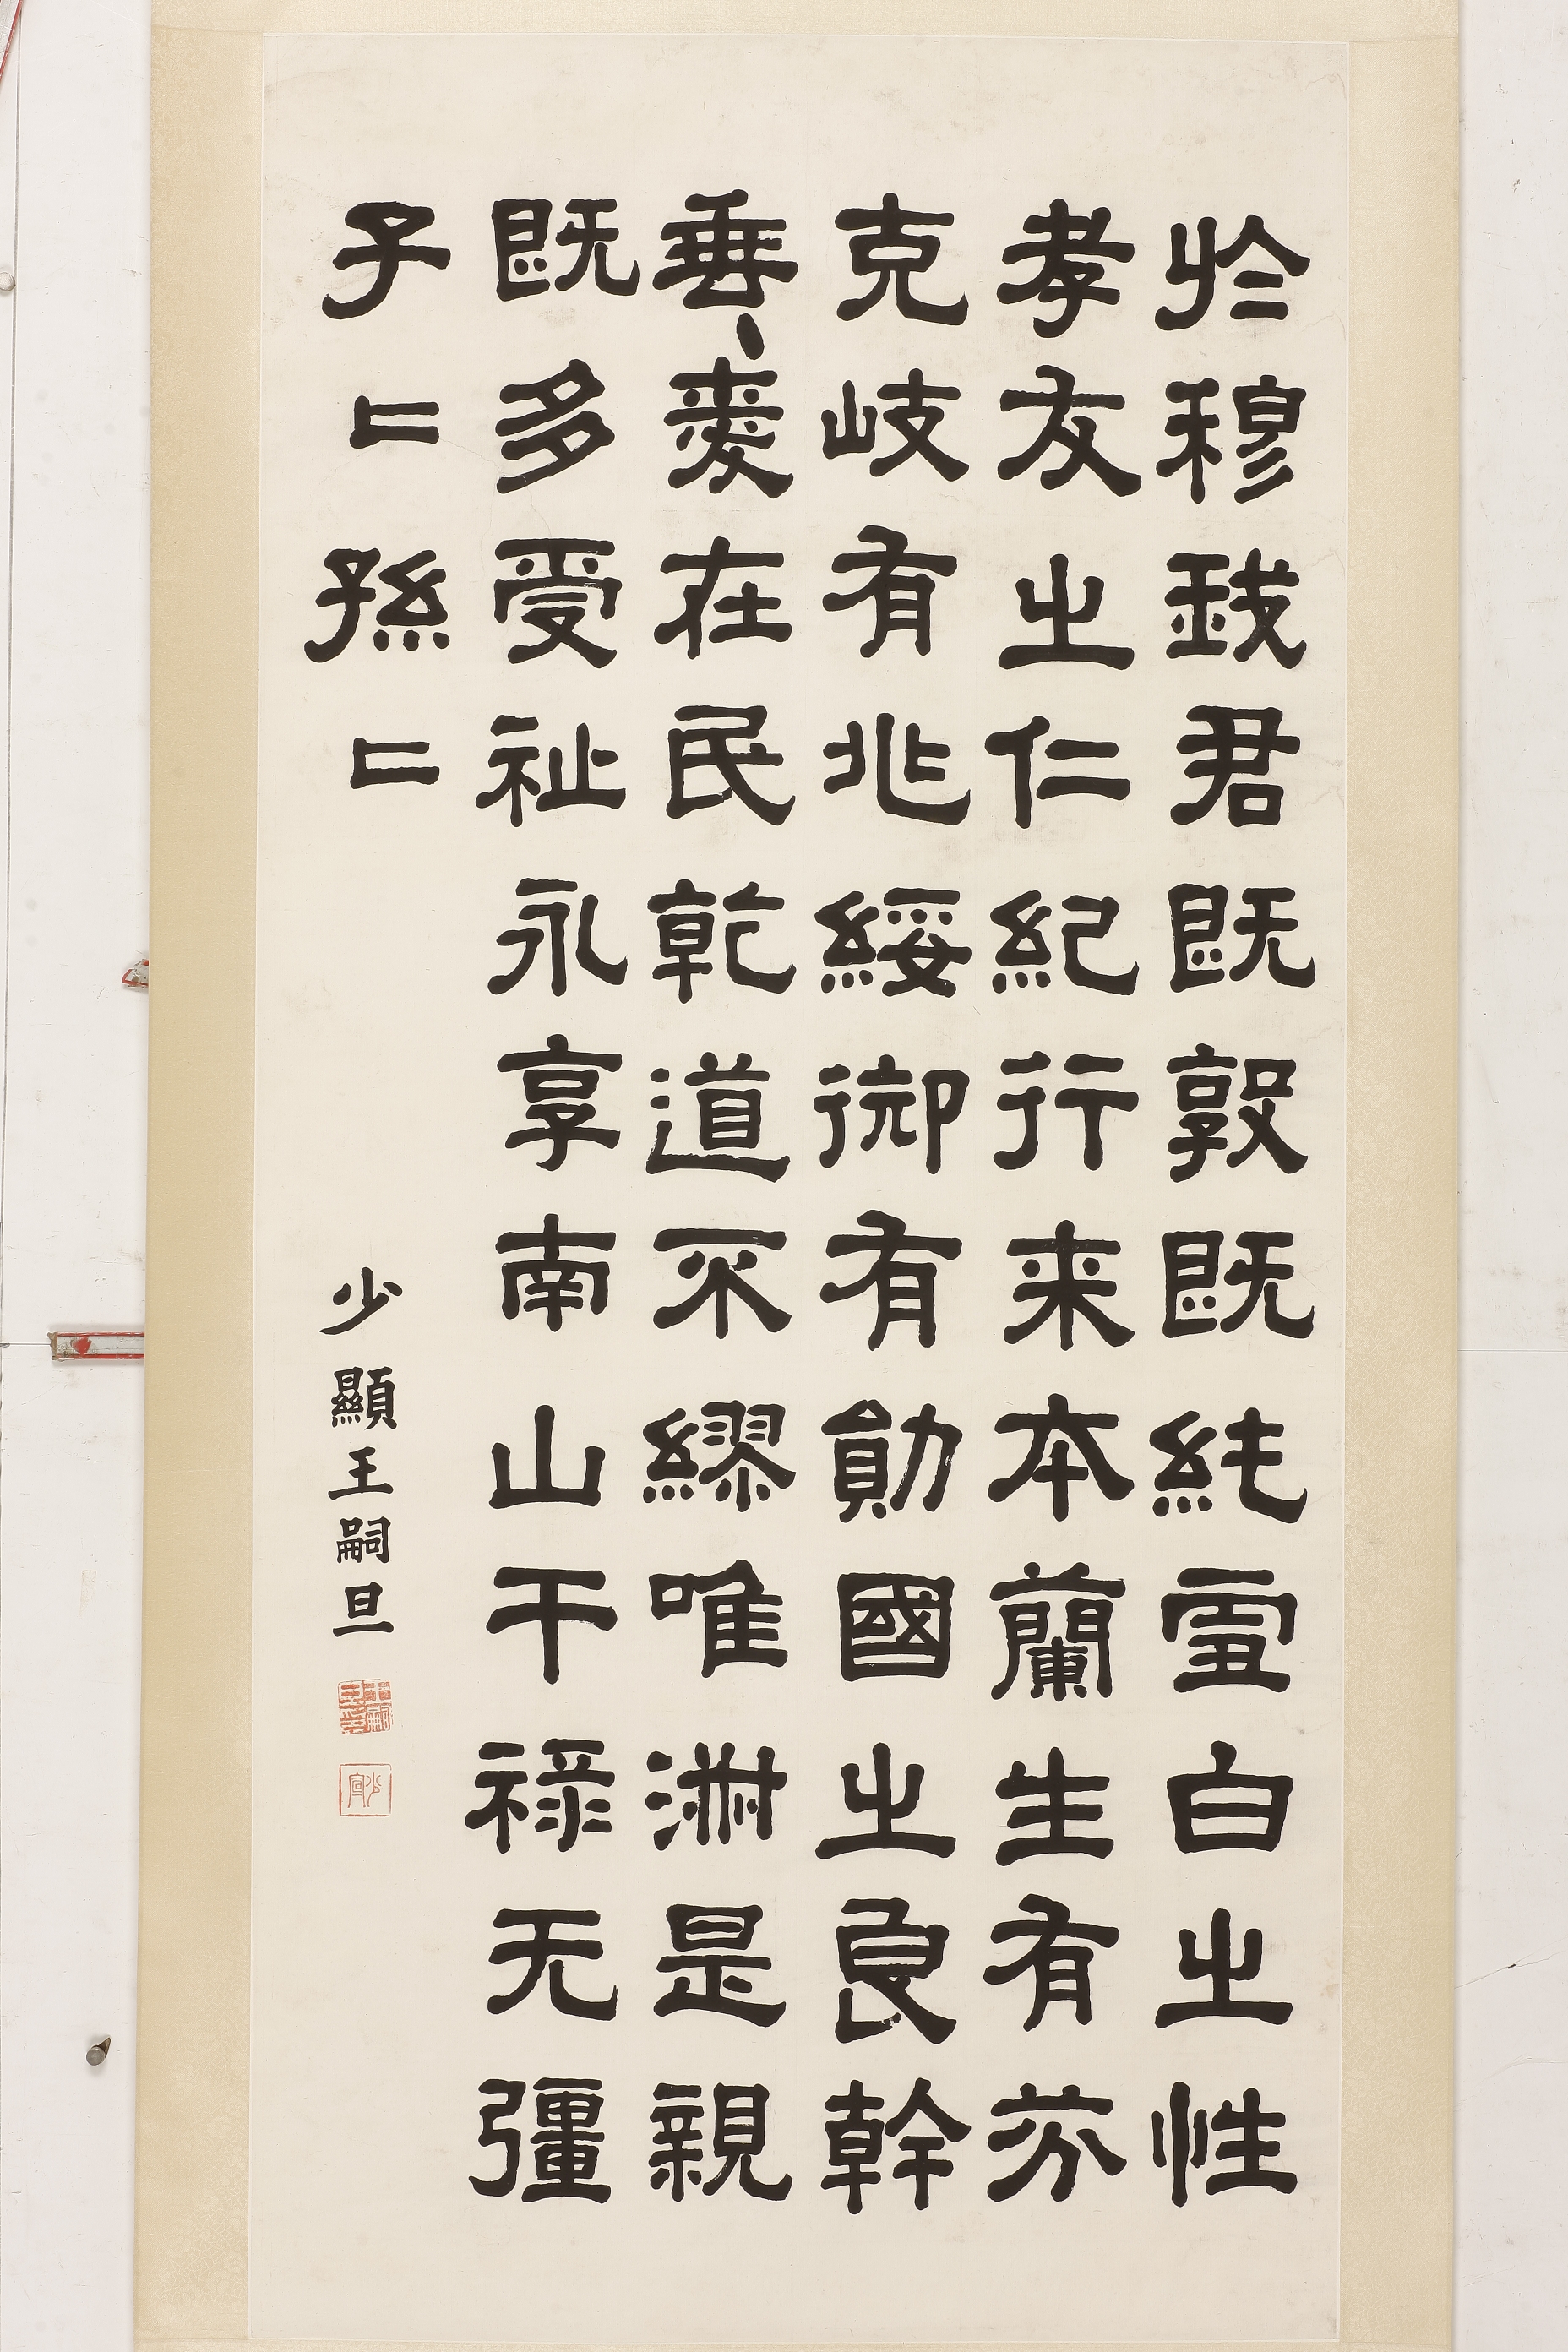 於穆我君既敦既純雪白之性
孝友之仁紀行来本蘭生有芬
克岐有兆綏御有勛國之良幹
垂愛在民乾道不繆唯淋是親
既多受祉永享南山干禄无彊
子二孫二
少顯王嗣旦